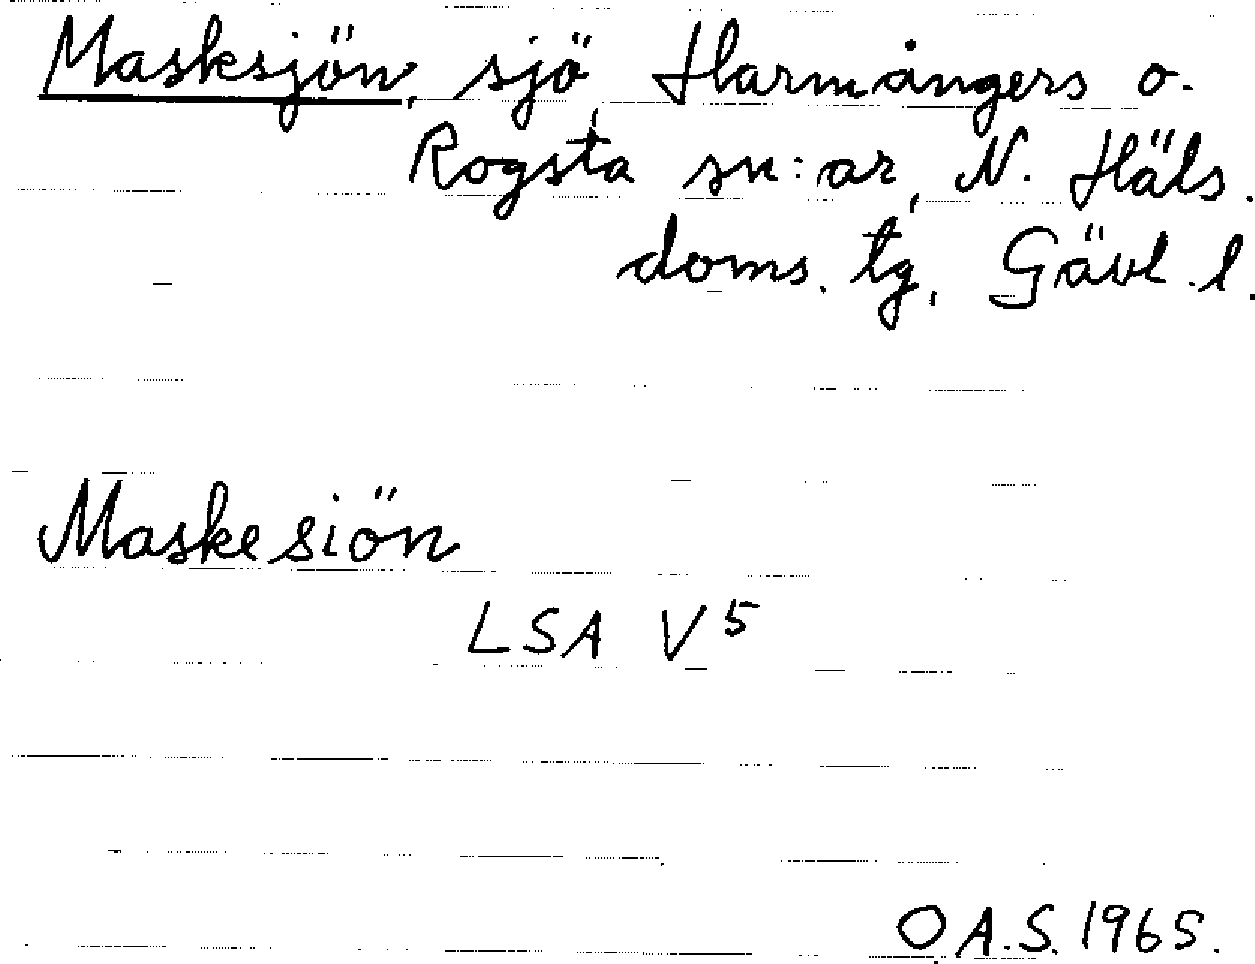 Masksjön, sjö, Harmångers o.
Rogsta sn:ar, N. Häls.
doms. tg, Gävl. l.
Maskesiön
LSA V5
O A.S. 1965.